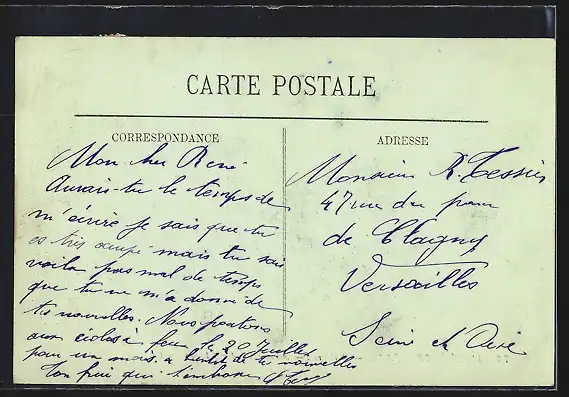 CARTE POSTALE
CORRESPONDANCE
Mon cher René
Aurais-tu le temps de
m'écrire je sais que tu
es très occupé mais tu sais
voila pas mal de temps
que tu ne m'a donné de
tes nouvelles. Nous partons
aux le 20 Juillet
pour un mois. a bientôt de tes nouvelles
Ton qui t'embrasse
ADRESSE
Monsieur R. Tessier
47 rue du parc
de Clagny
Versailles
Seine et Oise